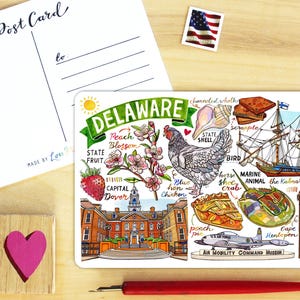 Post Card
to
MADE BY
DELAWARE
channeled whelk
STATE
SHELL
scrapple
Peach
Blossom
STATE
FRUIT
BIRD
CAPITAL
Dover
Blue
Hen
Chicken
horse
shoe
crab
MARINE
ANIMAL
the Kalmar
peach
pie
Cape
Henlopen
AIR MOBILITY COMMAND MUSEUM